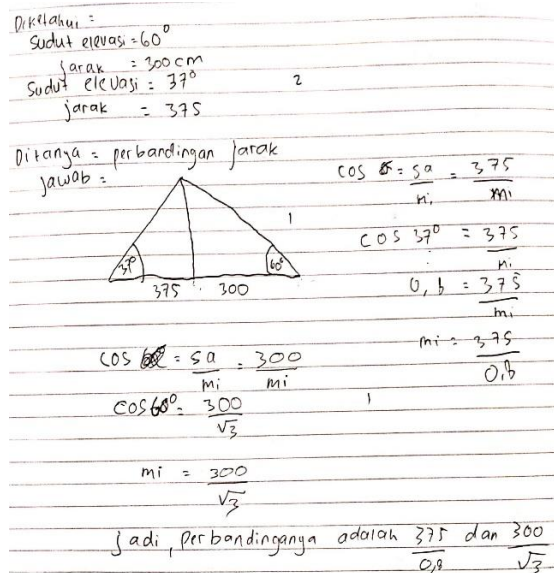 Diketahui =
sudut elevasi = 60°
jarak = 300 cm
sudut elevasi = 37°
jarak = 375
2
Ditanya = perbandingan jarak
jawab =
37° 60°
375 300
1
cos = sa/mi = 375/mi
cos 37° = 375/mi
0,8 = 375/mi
mi = 375/0,8
cos = sa/mi = 300/mi
cos 60° = 300/√3
1
mi = 300/√3
Jadi, perbandinganya adalah 375/0,8 dan 300/√3